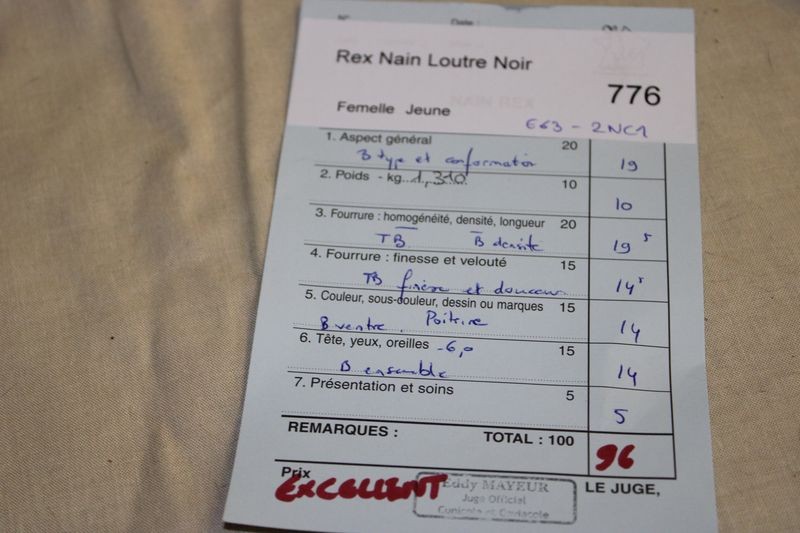 N° Date :
Rex Nain Loutre Noir
776
Femelle Jeune
E63 - 2NC1
1. Aspect général 20
B type et conformation 19
2. Poids - kg...1,310 10
10
3. Fourrure : homogénéité, densité, longueur 20
TB B densité 19 5
4. Fourrure : finesse et velouté 15
TB finesse et douceur 14 5
5. Couleur, sous-couleur, dessin ou marques 15
B ventre, Poitrine 14
6. Tête, yeux, oreilles -6,0 15
B ensemble 14
7. Présentation et soins 5
5
REMARQUES : TOTAL : 100 96
Prix LE JUGE,
EXCELLENT
Eddy MAYEUR
Juge Officiel